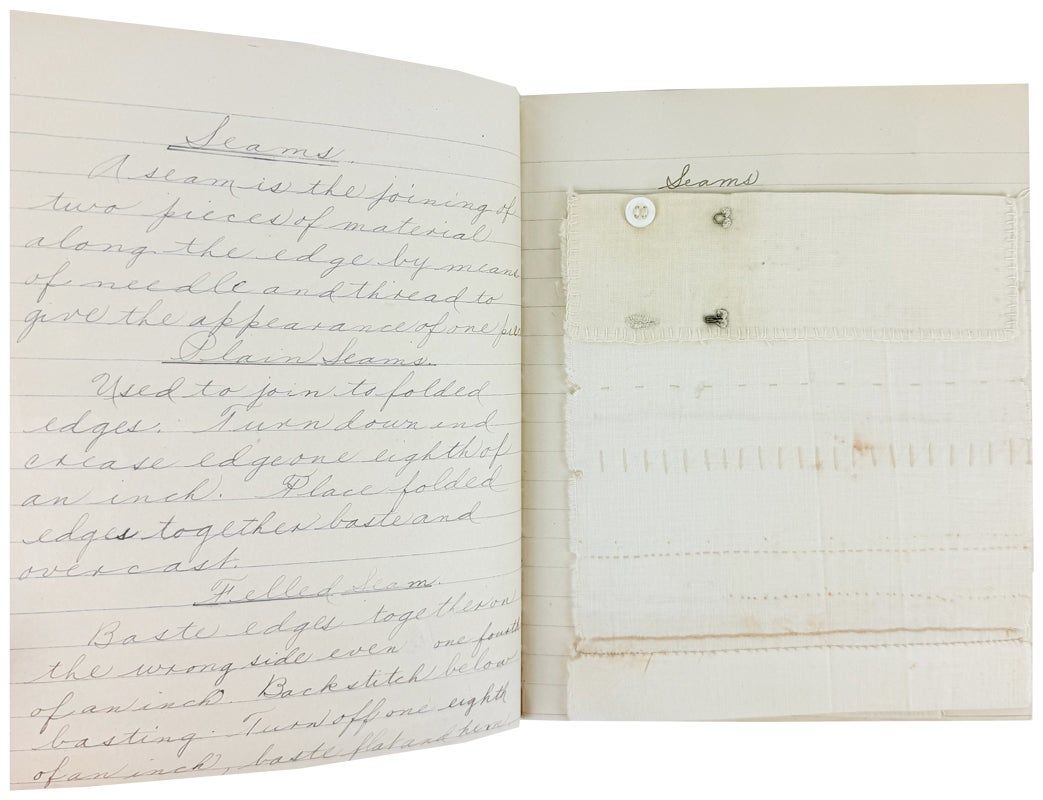 Seams.
A seam is the joining of
two pieces of material
along the edge by means
of needle and thread to
give the appearance of one
Plain Seams.
Used to join to folded
edges. Turn down and
crease edge one eighth of
an inch. Place folded
edges together baste and
overcast.
Felled Seam.
Baste edges together on
the wrong side even one fourth
of an inch. Backstitch below
basting. Turn off one eighth
of an inch, baste flat and hem
Seams